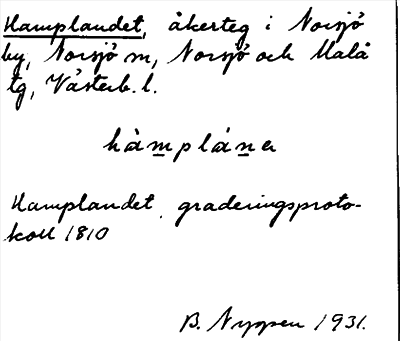 Hamplandet, åkerteg i Norsjö
by, Norsjö sn, Norsjö och Malå
tg, Västerb. l.
hàmpláner
Hamplandet graderingsproto-
koll 1810
B. Nyppen 1931.